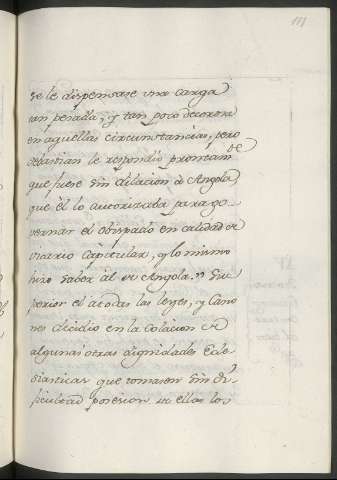 111
se le dispensase una carga
tan pesada, y tan poco decorosa
en aquellas circunstancias, pero
Sebastian le respondió prontam.te
que fuese sin dilacion à Angola,
que èl lo autorizaba para go-
vernar el obispado en calidad de
vicario capitular, y lo mismo
hizo saber al de Angola. Su-
perior èl a todas las leyes, y Cano
nes decidio en la colacion de
algunas otras dignidades Ecle
siasticas que tomasen sin di
ficultad posesion de ellas los